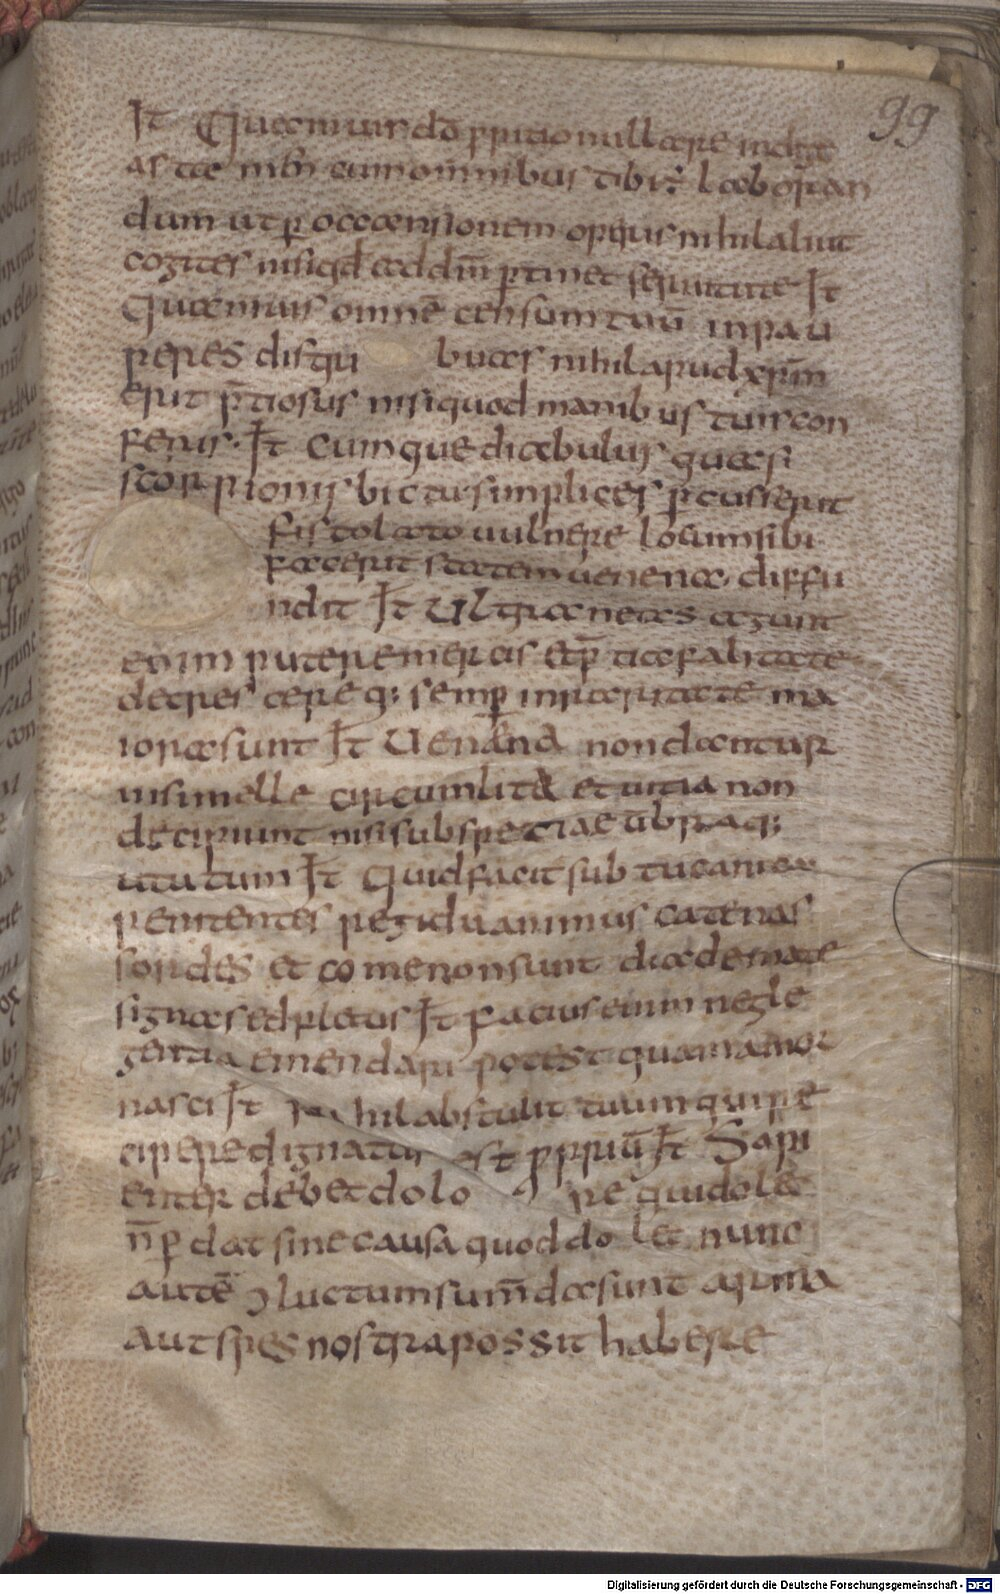 99
It Quamuis dō ppitio nullare indige
as tae mihi cum omnibus tibi: laboran
dum ut p occansionem operis nihil aliut
cogites nisi qd ad dnm ptinet seruitute It
Quamuis omnē censum tuū in pau
peres disqu buas nihil apud xpm
erit ptiosus nisi quod manibus tuis con
feris. It Cumque diabulus quasi
scorpionis bictu simplices pcusserit
fistolato uulnere locum sibi
facerit statem uenena diffu
ndit It Ultra neas agunt
enim puteremercis et p ticafalitate
decrescere q; semp in paritate ma
iora sunt It Uenana non dantur
nisi melle circumlita et uitia non
decipiunt nisi sub spetiae ūbraq;
uitutum It Quid facit sub tuca mea
penitentes regi du animus catenas
sordes et come non sunt diademate
signa sed fletus It Facius enim negle
gentia emendari potest quam amor
nasci It Nihil abstulit tuum qui re
cipere dignatus est ppriū It Sapi
enter debet dolo re qui dolet
n p dat sine causa quod dolet nunc
autē ꝯluctum sum dasunt arma
aut spes nostra possit habere
Digitalisierung gefördert durch die Deutsche Forschungsgemeinschaft - DFG